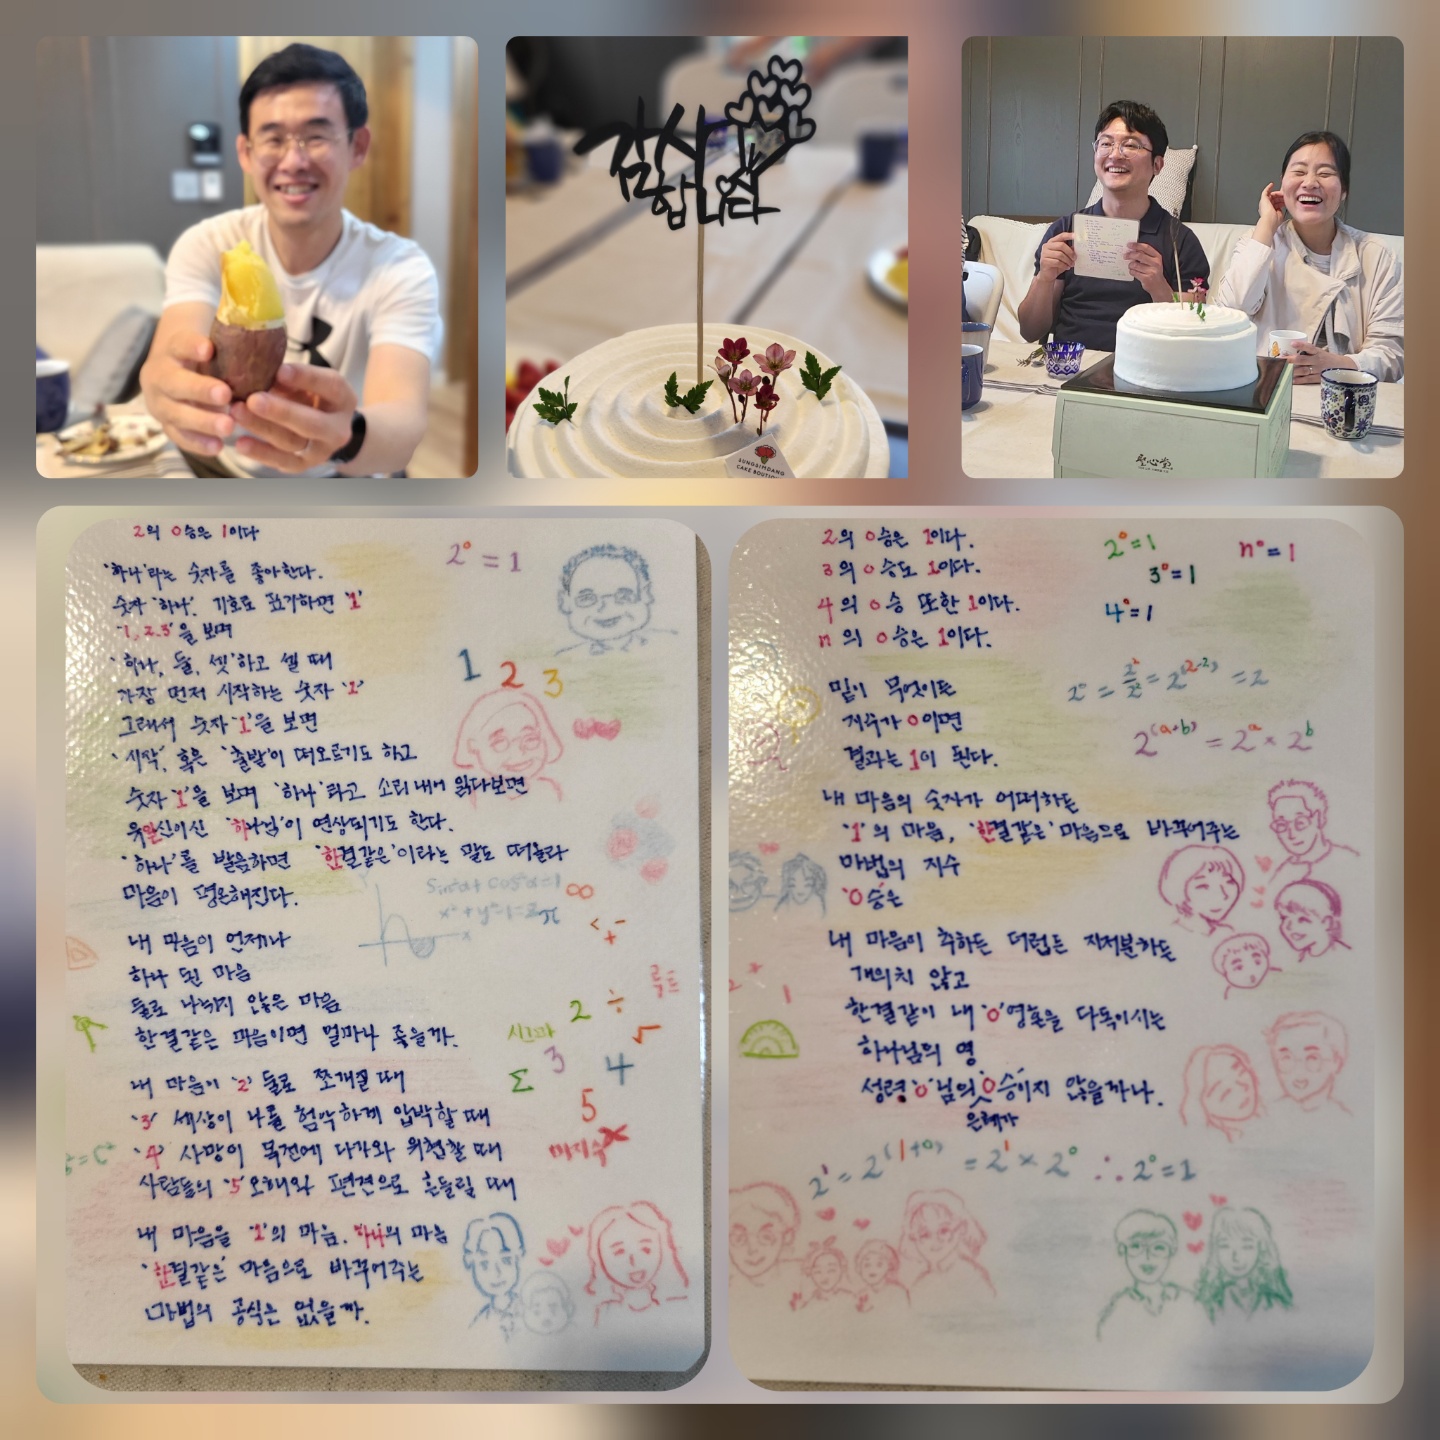 감사합니다
SUNGSIMDANG
CAKE BOUTIQUE
聖心堂
2의 0승은 1이다
2⁰ = 1
'하나'라는 숫자를 좋아한다.
숫자 '하나'. 기호로 표기하면 '1'
'1, 2, 3'을 보며
'하나, 둘, 셋'하고 셀 때
가장 먼저 시작하는 숫자 '1'
1 2 3
그래서 숫자 '1'을 보면
'시작', 혹은 '출발'이 떠오르기도 하고
숫자 '1'을 보며 '하나'라고 소리내어 읽다보면
유일신이신 '하나님'이 연상되기도 한다.
'하나'를 발음하면 '한결같은'이라는 말도 떠올라
마음이 평온해진다.
Sin²α + Cos²α = 1
∞
내 마음이 언제나
하나 된 마음
둘로 나뉘지 않은 마음
한결같은 마음이면 얼마나 좋을까.
루트
2 ÷
시그마 3 √
Σ 4
5
내 마음이 '2' 둘로 쪼개질 때
'3' 세상이 나를 험악하게 압박할 때
'4' 사망이 목전에 다가와 위협할 때
미지수 X
사람들의 '5'오해와 편견으로 흔들릴 때
내 마음을 '1'의 마음, 하나의 마음
'한결같은' 마음으로 바꾸어주는
마법의 공식은 없을까.
2의 0승은 1이다.
3의 0승도 1이다.
4의 0승 또한 1이다.
n의 0승은 1이다.
2⁰=1
n⁰=1
3⁰=1
4⁰=1
밑이 무엇이든
지수가 0이면
결과는 1이 된다.
2^(a+b) = 2^a × 2^b
내 마음의 숫자가 어떠하든
'1'의 마음, '한결같은' 마음으로 바꾸어주는
마법의 지수
'0'승은
내 마음이 추하든 더럽든 지저분하든
개의치 않고
한결같이 내 '0'영혼을 다독이시는
하나님의 영
성령'0'님의 '0'승이지 않을까나.
은혜가
2¹ = 2^(1+0) = 2¹ × 2⁰ ∴ 2⁰ = 1